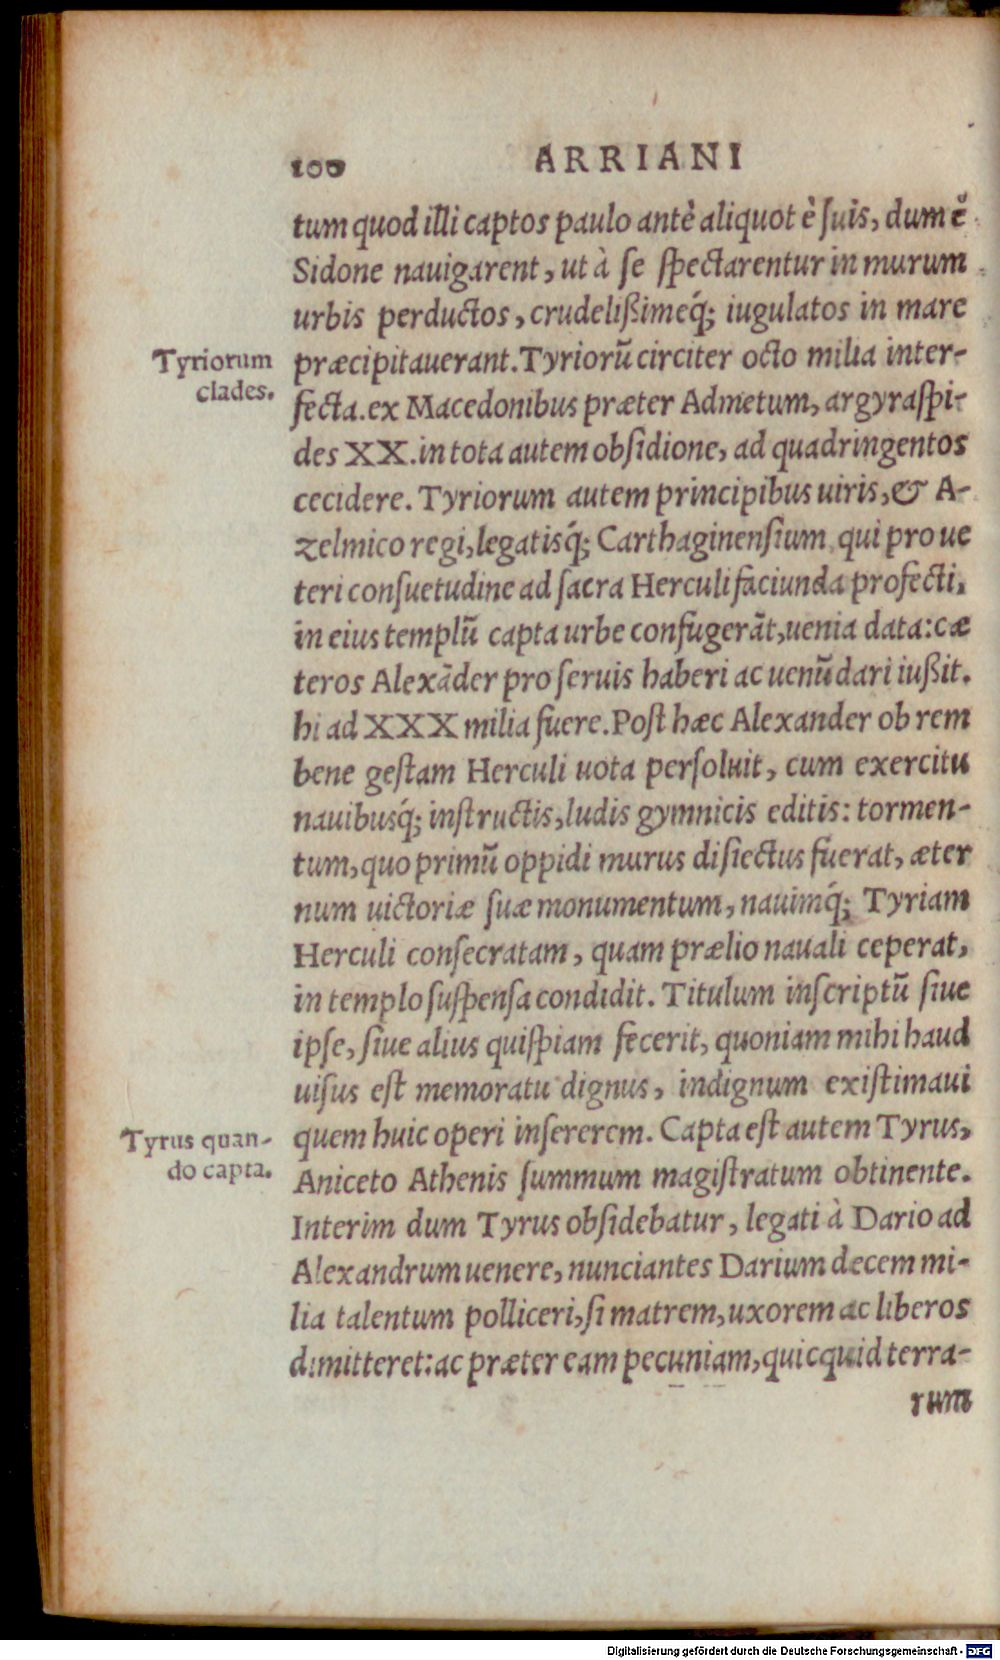 100 ARRIANI
tum quod illi captos paulo antè aliquot è suis, dum è
Sidone nauigarent, ut à se spectarentur in murum
urbis perductos, crudelißimeq́; iugulatos in mare
Tyriorum clades.
præcipitauerant. Tyriorũ circiter octo milia inter-
fecta. ex Macedonibus præter Admetum, argyraspi-
des XX. in tota autem obsidione, ad quadringentos
cecidere. Tyriorum autem principibus uiris, & A-
zelmico regi, legatisq́; Carthaginensium qui pro ue
teri consuetudine ad sacra Herculi faciunda profecti,
in eius templũ capta urbe confugerãt, uenia data: cæ
teros Alexãder pro seruis haberi ac uenũdari iußit.
hi ad XXX milia fuere. Post hæc Alexander ob rem
bene gestam Herculi uota persoluit, cum exercitu
nauibusq́; instructis, ludis gymnicis editis: tormen-
tum, quo primũ oppidi murus disiectus fuerat, æter
num uictoriæ suæ monumentum, nauimq́; Tyriam
Herculi consecratam, quam prælio nauali ceperat,
in templo suspensa condidit. Titulum inscriptũ siue
ipse, siue alius quispiam fecerit, quoniam mihi haud
uisus est memoratu dignus, indignum existimaui
Tyrus quan-
do capta.
quem huic operi insererem. Capta est autem Tyrus,
Aniceto Athenis summum magistratum obtinente.
Interim dum Tyrus obsidebatur, legati à Dario ad
Alexandrum uenere, nunciantes Darium decem mi-
lia talentum polliceri, si matrem, uxorem ac liberos
dimitteret: ac præter eam pecuniam, quicquid terra-
rum
Digitalisierung gefördert durch die Deutsche Forschungsgemeinschaft - DFG